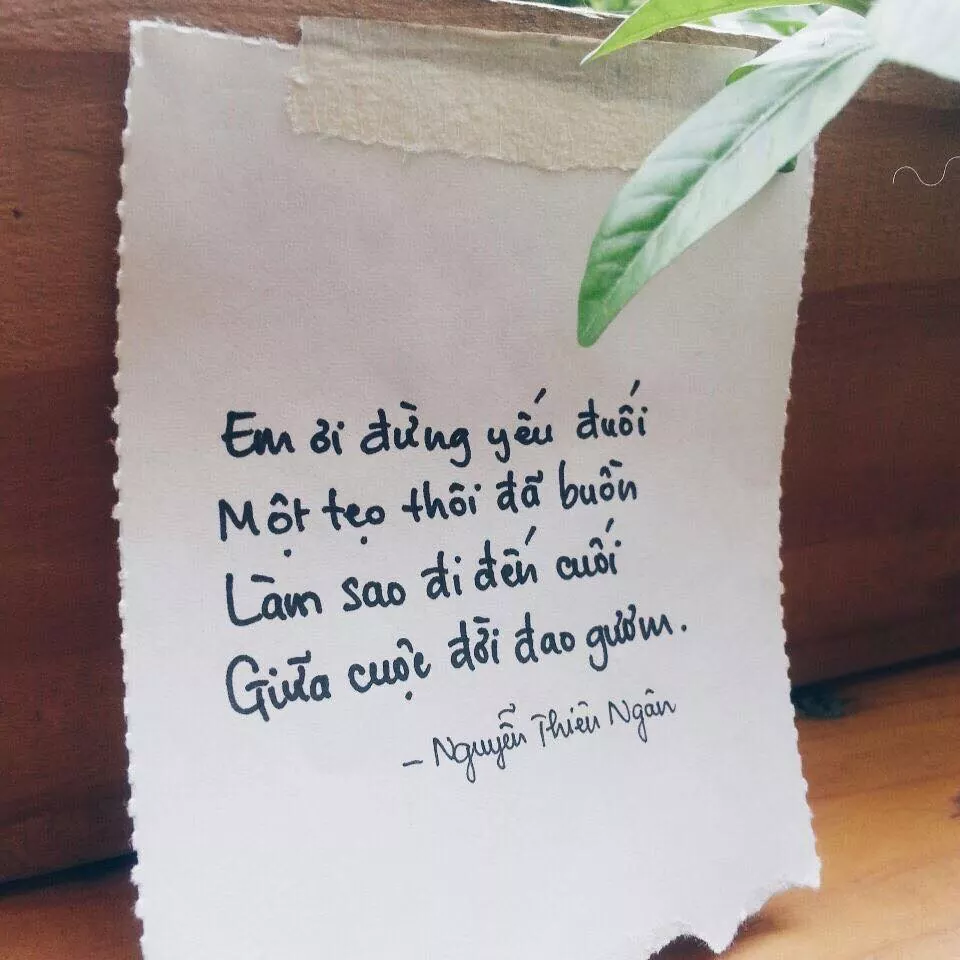 Em ơi đừng yếu đuối
Một tẹo thôi đã buồn
Làm sao đi đến cuối
Giữa cuộc đời đao gươm.
- Nguyễn Thiên Ngân